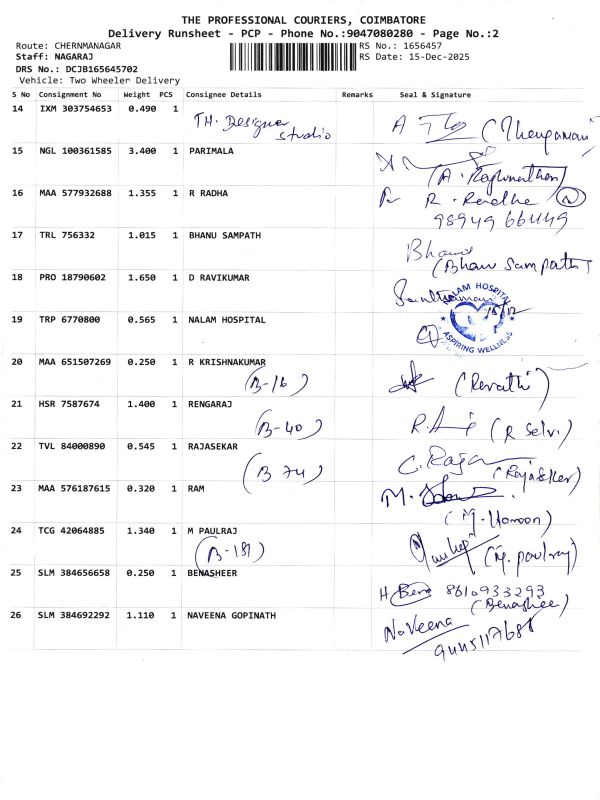 THE PROFESSIONAL COURIERS, COIMBATORE
Delivery Runsheet - PCP - Phone No.:9047080280 - Page No.:2
Route: CHERNMANAGAR
RS No.: 1656457
Staff: NAGARAJ
RS Date: 15-Dec-2025
DRS No.: DCJB165645702
Vehicle: Two Wheeler Delivery
S No Consignment No Weight PCS Consignee Details Remarks Seal & Signature
14 IXM 303754653 0.490 1 TH. Designer Studio
15 NGL 100361585 3.400 1 PARIMALA
(A. Raghunathan)
16 MAA 577932688 1.355 1 R RADHA R. Radha
17 TRL 756332 1.015 1 BHANU SAMPATH
(Bhanu Sampath)
18 PRO 18790602 1.650 1 D RAVIKUMAR
19 TRP 6770800 0.565 1 NALAM HOSPITAL
NALAM HOSPITAL
15/12
ASPIRING WELLNESS
20 MAA 651507269 0.250 1 R KRISHNAKUMAR
(B-16) (Revathi)
21 HSR 7587674 1.400 1 RENGARAJ
(B-40) (R Selvi)
22 TVL 84000890 0.545 1 RAJASEKAR
(B 74) C. Raja (Rajasker)
23 MAA 576187615 0.320 1 RAM
24 TCG 42064885 1.340 1 M PAULRAJ
(B-181) (M. paulraj)
25 SLM 384656658 0.250 1 BENASHEER
H Bena 8610933293
(Benashee)
26 SLM 384692292 1.110 1 NAVEENA GOPINATH
Naveena